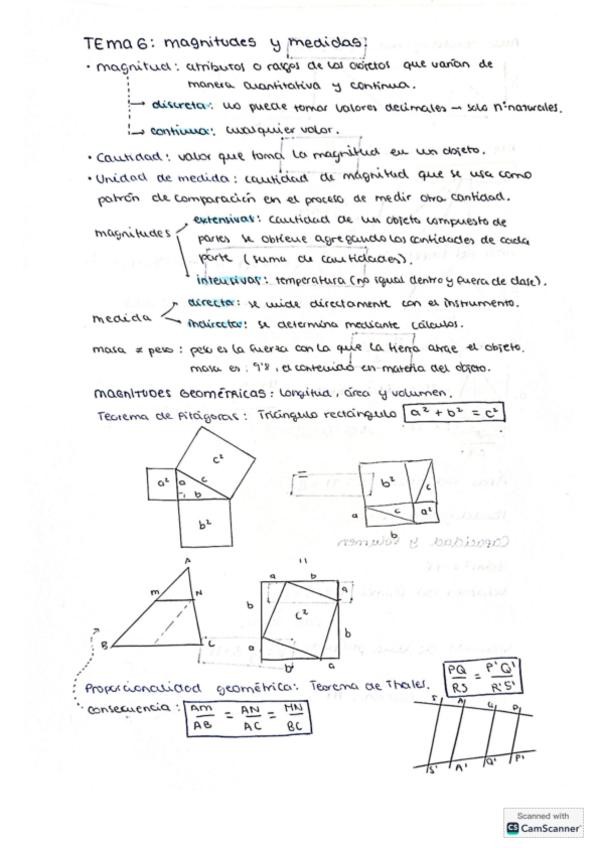 Tema 6: magnitudes y medidas.
• magnitud: atributos o rasgos de los objetos que varían de
manera cuantitativa y continua.
→ discreta: no puede tomar valores decimales → solo nº naturales.
→ continua: cualquier valor.
• Cantidad: valor que toma la magnitud en un objeto.
• Unidad de medida: cantidad de magnitud que se usa como
patrón de comparación en el proceso de medir otra cantidad.
magnitudes
extensivas: cantidad de un objeto compuesto de
partes se obtiene agregando las cantidades de cada
parte (suma de cantidades).
intensivas: temperatura (no igual dentro y fuera de clase).
medida
directa: se mide directamente con el instrumento.
indirecta: se determina mediante cálculos.
masa ≠ peso: peso es la fuerza con la que la tierra atrae el objeto.
masa es: 9'8, el contenido en materia del objeto.
MAGNITUDES GEOMÉTRICAS: longitud, área y volumen.
Teorema de Pitágoras: Triángulo rectángulo a² + b² = c²
c²
a² a c
b
b²
=
b² c
a c a²
b
A
M N
B C
a b
b a
c²
a b
b a
Proporcionalidad geométrica: Teorema de Thales.
PQ/RS = P'Q'/R'S'
consecuencia: AM/AB = AN/AC = MN/BC
S' A' Q' P'
Scanned with
CS CamScanner